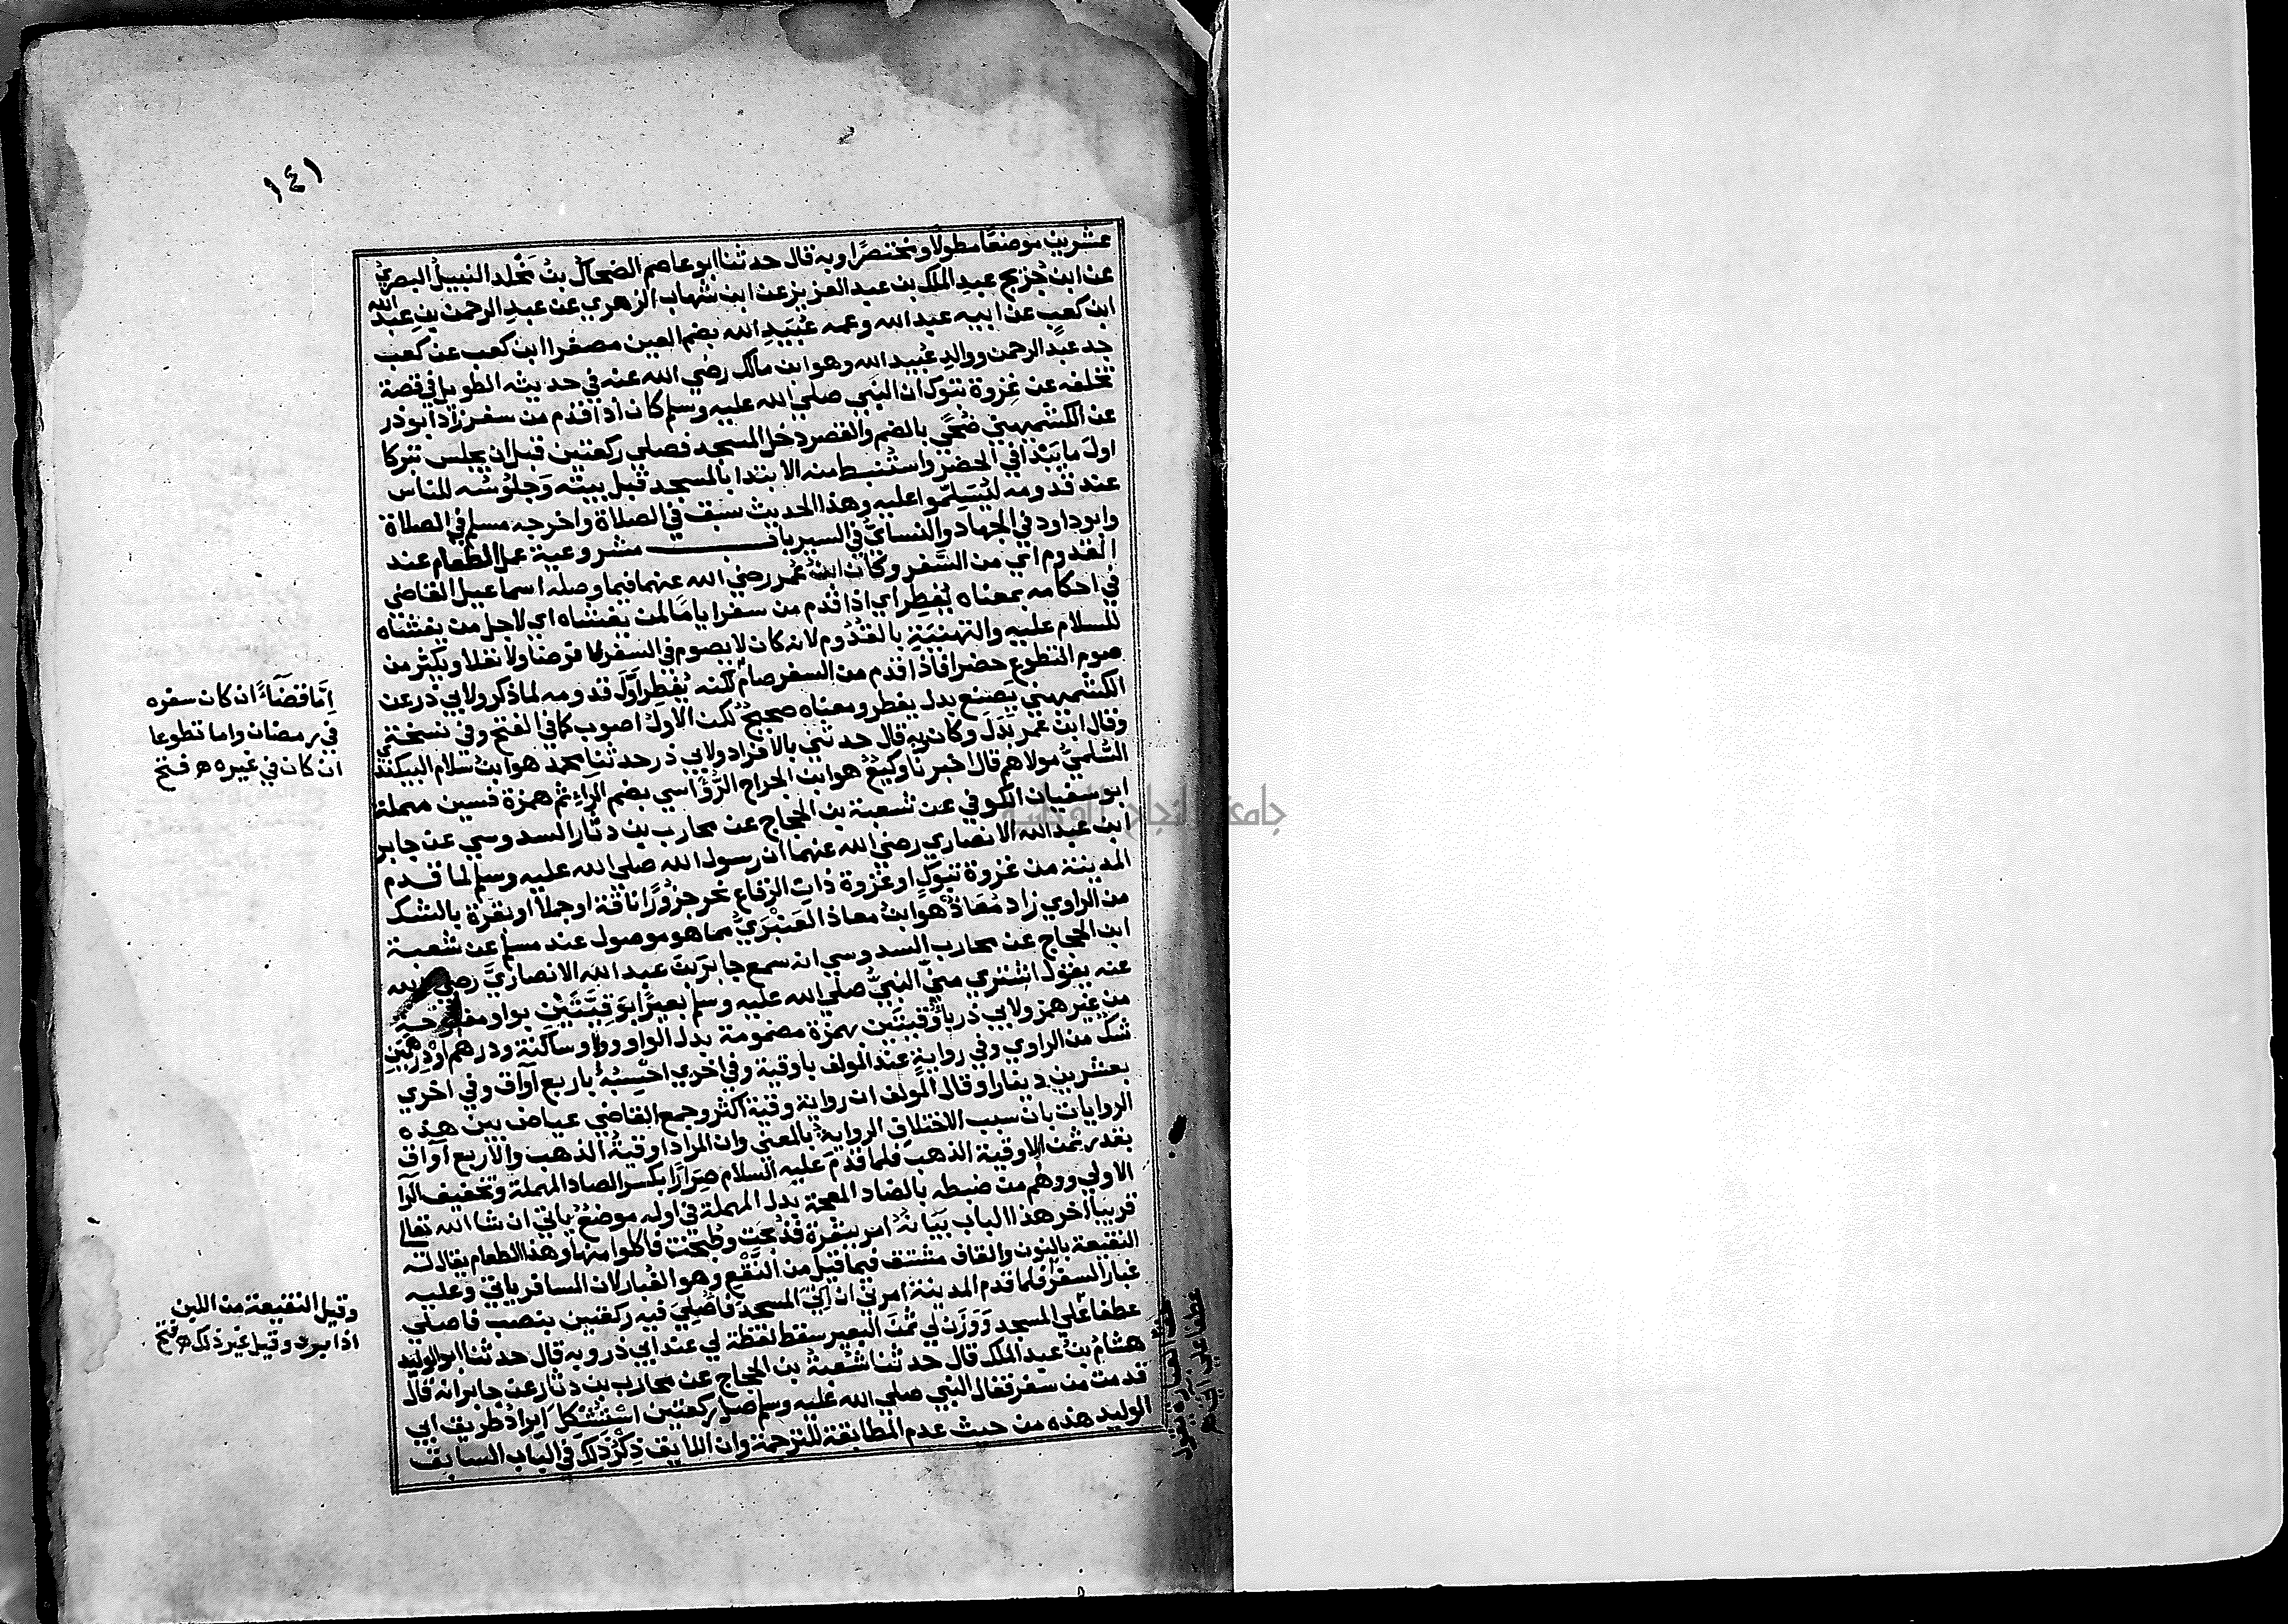 ١٤١
عشرين موضعا مطولا ومختصرا وبه قال حدثنا ابو عاصم الضحاك بن مخلد النبيل البصري
عن ابن جريج عبد الملك بن عبد العزيز عن ابن شهاب الزهري عن عبد الرحمن بن عبد الله
ابن كعب عن ابيه عبد الله وعمه عبيد الله بضم العين مصغرا ابن كعب عن كعب
جد عبد الرحمن ووالد عبيد الله وهو ابن مالك رضي الله عنه في حديثه الطويل في قصة
تخلفه عن غزوة تبوك ان النبي صلي الله عليه وسلم كان اذا قدم من سفر زاد ابو ذر
عن الكشميهني ضحي بالضم والقصر دخل المسجد فصلي ركعتين قبل ان يجلس تبركا
اول ما يبدا في الحضر واستنبط منه الابتدا بالمسجد قبل بيته وجلوسه للناس
عند قدومه ليسلموا عليه وهذا الحديث سبق في الصلاة واخرجه مسلم في الصلاة
وابو داود في الجهاد والنساي في السير باب مشروعية عمل الطعام عند
القدوم اي من السفر وكان ابن عمر رضي الله عنهما فيما وصله اسماعيل القاضي
في احكامه بمعناه يفطر اي اذا قدم من سفر اياما لمن يغشاه اي لاجل من يغشاه
للسلام عليه والتهنية بالقدوم لانه كان لا يصوم في السفر لا فرضا ولا نفلا ويكثر من
صوم التطوع حضرا فاذا قدم من السفر صام لكنه يفطر اول قدومه لما ذكر ولابي ذر عن
الكشميهني يصنع بدل يفطر ومعناه صحيح لكن الاول اصوب كما في الفتح وفي نسخة
وقال ابن عمر بدل وكان وبه قال حدثني بالافراد ولابي ذر حدثنا محمد هو ابن سلام البيكندي
السلمي مولاهم قال اخبرنا وكيع هو ابن الجراح الرؤاسي بضم الراء ثم همزة فسين مهملة
ابو سفيان الكوفي عن شعبة بن الحجاج عن محارب بن دثار السدوسي عن جابر
ابن عبد الله الانصاري رضي الله عنهما ان رسول الله صلي الله عليه وسلم لما قدم
المدينة من غزوة تبوك او غزوة ذات الرقاع نحر جزورا ناقة او جملا او بقرة بالشك
من الراوي زاد معاذ هو ابن معاذ العنبري مما هو موصول عند مسلم عن شعبة
ابن الحجاج عن محارب السدوسي انه سمع جابر بن عبد الله الانصاري رضي الله
عنه يقول اشتري مني النبي صلي الله عليه وسلم بعيرا بوقيتين بواو مفتوحة
من غير همز ولابي ذر باوقيتين بهمزة مضمومة بدل الواو وواو ساكنة ودرهم او درهمين
شك من الراوي وفي رواية عند المولف باوقية وفي اخري احسبه باربع آواق وفي اخري
بعشرين دينارا وقال المولف ان رواية وقية اكثر وجمع القاضي عياض بين هذه
الروايات بان سبب الاختلاف الرواية بالمعني وان المراد اوقية الذهب والاربع آواق
بقدر ثمن الاوقية الذهب فلما قدم عليه السلام صرارا بكسر الصاد المهملة وتخفيف الرا
الاولي ووهم من ضبطه بالضاد المعجمة بدل المهملة في اوله موضع ياتي ان شا الله تعالي
قريبا آخر هذا الباب بيانه امر ببقرة فذبحت وطبخت فاكلوا منها وهذا الطعام يقال له
النقيعة بالنون والقاف مشتق فيما قيل من النقع وهو الغبار لان المسافر ياتي وعليه
غبار السفر فلما قدم المدينة امرني ان آتي المسجد فاصلي فيه ركعتين بنصب فاصلي
عطفا علي المسجد ووزن لي ثمن البعير سقط لفظة لي عند ابي ذر وبه قال حدثنا ابو الوليد
هشام بن عبد الملك قال حدثنا شعبة بن الحجاج عن محارب بن دثار عن جابر انه قال
قدمت من سفر فقال النبي صلي الله عليه وسلم صل ركعتين استشكل ايراد طريق ابي
الوليد هذه من حيث عدم المطابقة للترجمة وان اللايق ذكر ذلك في الباب السابق
اما قضاء ان كان سفره
في رمضان واما تطوعا
ان كان في غيره ه فتح
وقيل النقيعة من اللبن
اذا برد وقيل غير ذلك ه فتح
عطفا علي اتي
جامعة النجاح الوطنية